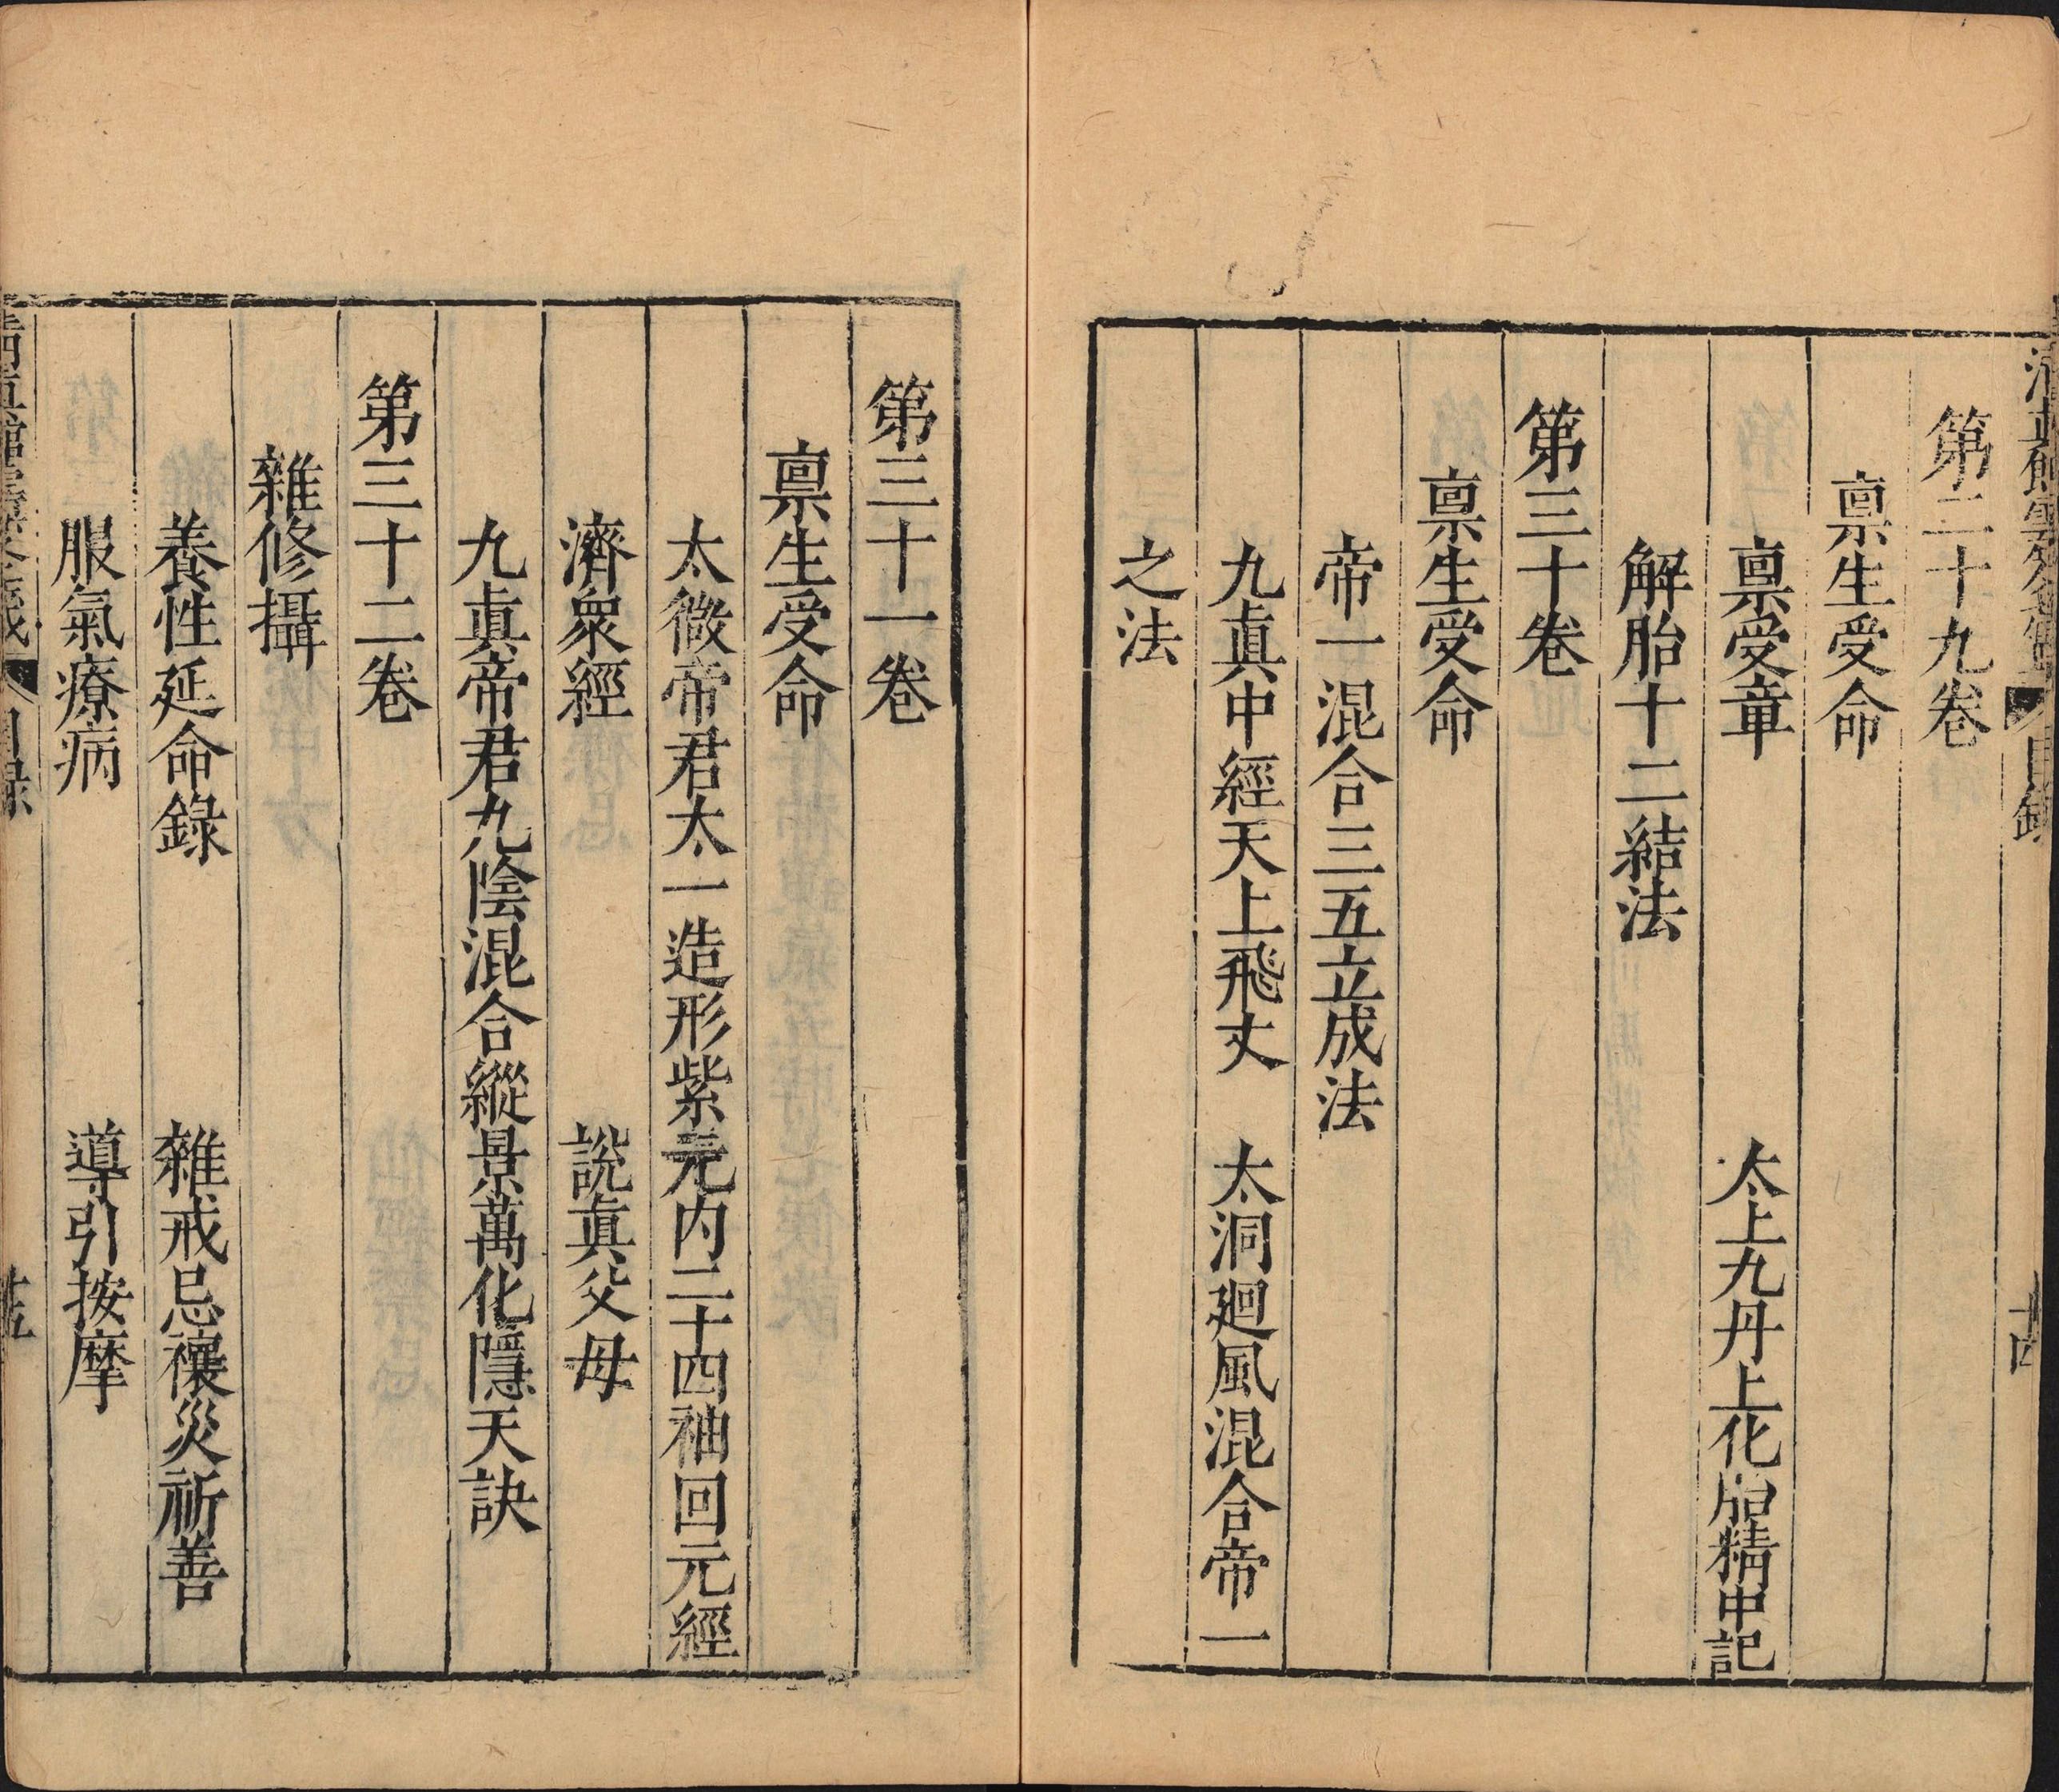 第二十九卷
禀生受命
禀受章 太上九丹上化胎精中記
解胎十二結法
第三十卷
禀生受命
帝一混合三五立成法
九眞中經天上飛丈 太洞廻風混合帝一
之法
第三十一卷
禀生受命
太微帝君太一造形紫元内二十四神回元經
濟衆經 說眞父母
九眞帝君九陰混合縱景萬化隱天訣
第三十二卷
雜修攝
養性延命錄 雜戒忌禳災祈善
服氣療病 導引按摩